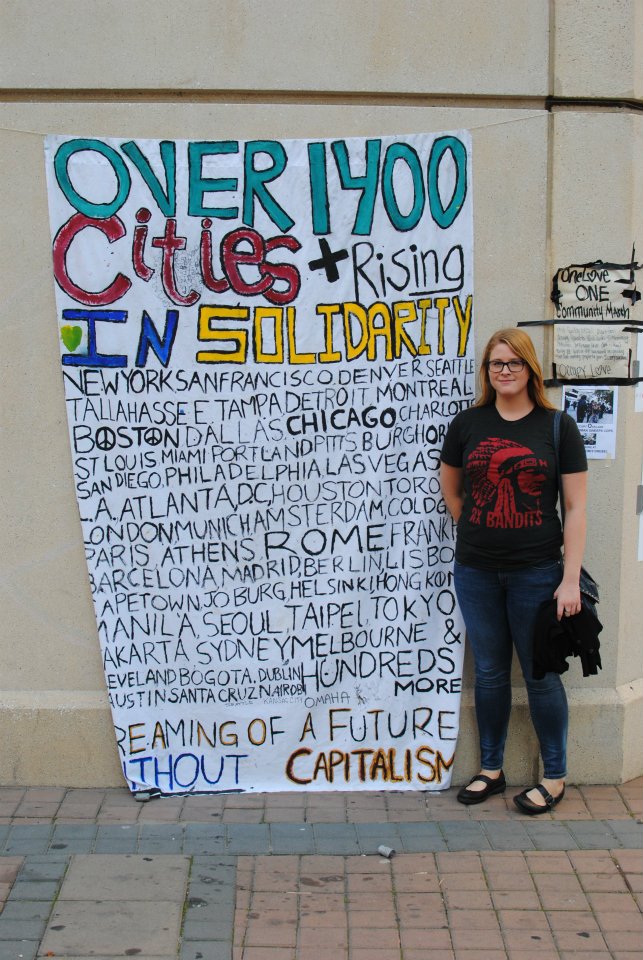 OVER 1400
Cities + Rising
IN SOLIDARITY
NEW YORK SAN FRANCISCO. DENVER SEATTLE
TALLAHASSEE, TAMPA DETROIT MONTREAL
BOSTON DALLAS. CHICAGO CHARLOTTE
ST LOUIS MIAMI PORTLAND PITTSBURGH
SAN DIEGO. PHILADELPHIA LAS VEGAS
L.A, ATLANTA, D.C, HOUSTON TORO
LONDON MUNICH AMSTERDAM, COLOG
PARIS, ATHENS ROME FRANKF
BARCELONA, MADRID, BERLIN, LISBO
CAPETOWN, JOBURG, HELSINKI, HONG KON
MANILA, SEOUL, TAIPEI, TOKYO
JAKARTA, SYDNEY MELBOURNE &
CLEVELAND BOGOTA, DUBLIN HUNDREDS
AUSTIN SANTA CRUZ NAIROBI MORE
SEATTLE KANSAS CITY OMAHA
REAMING OF A FUTURE
ITHOUT CAPITALISM
One Love
ONE
Community March
Occupy Love
RX BANDITS